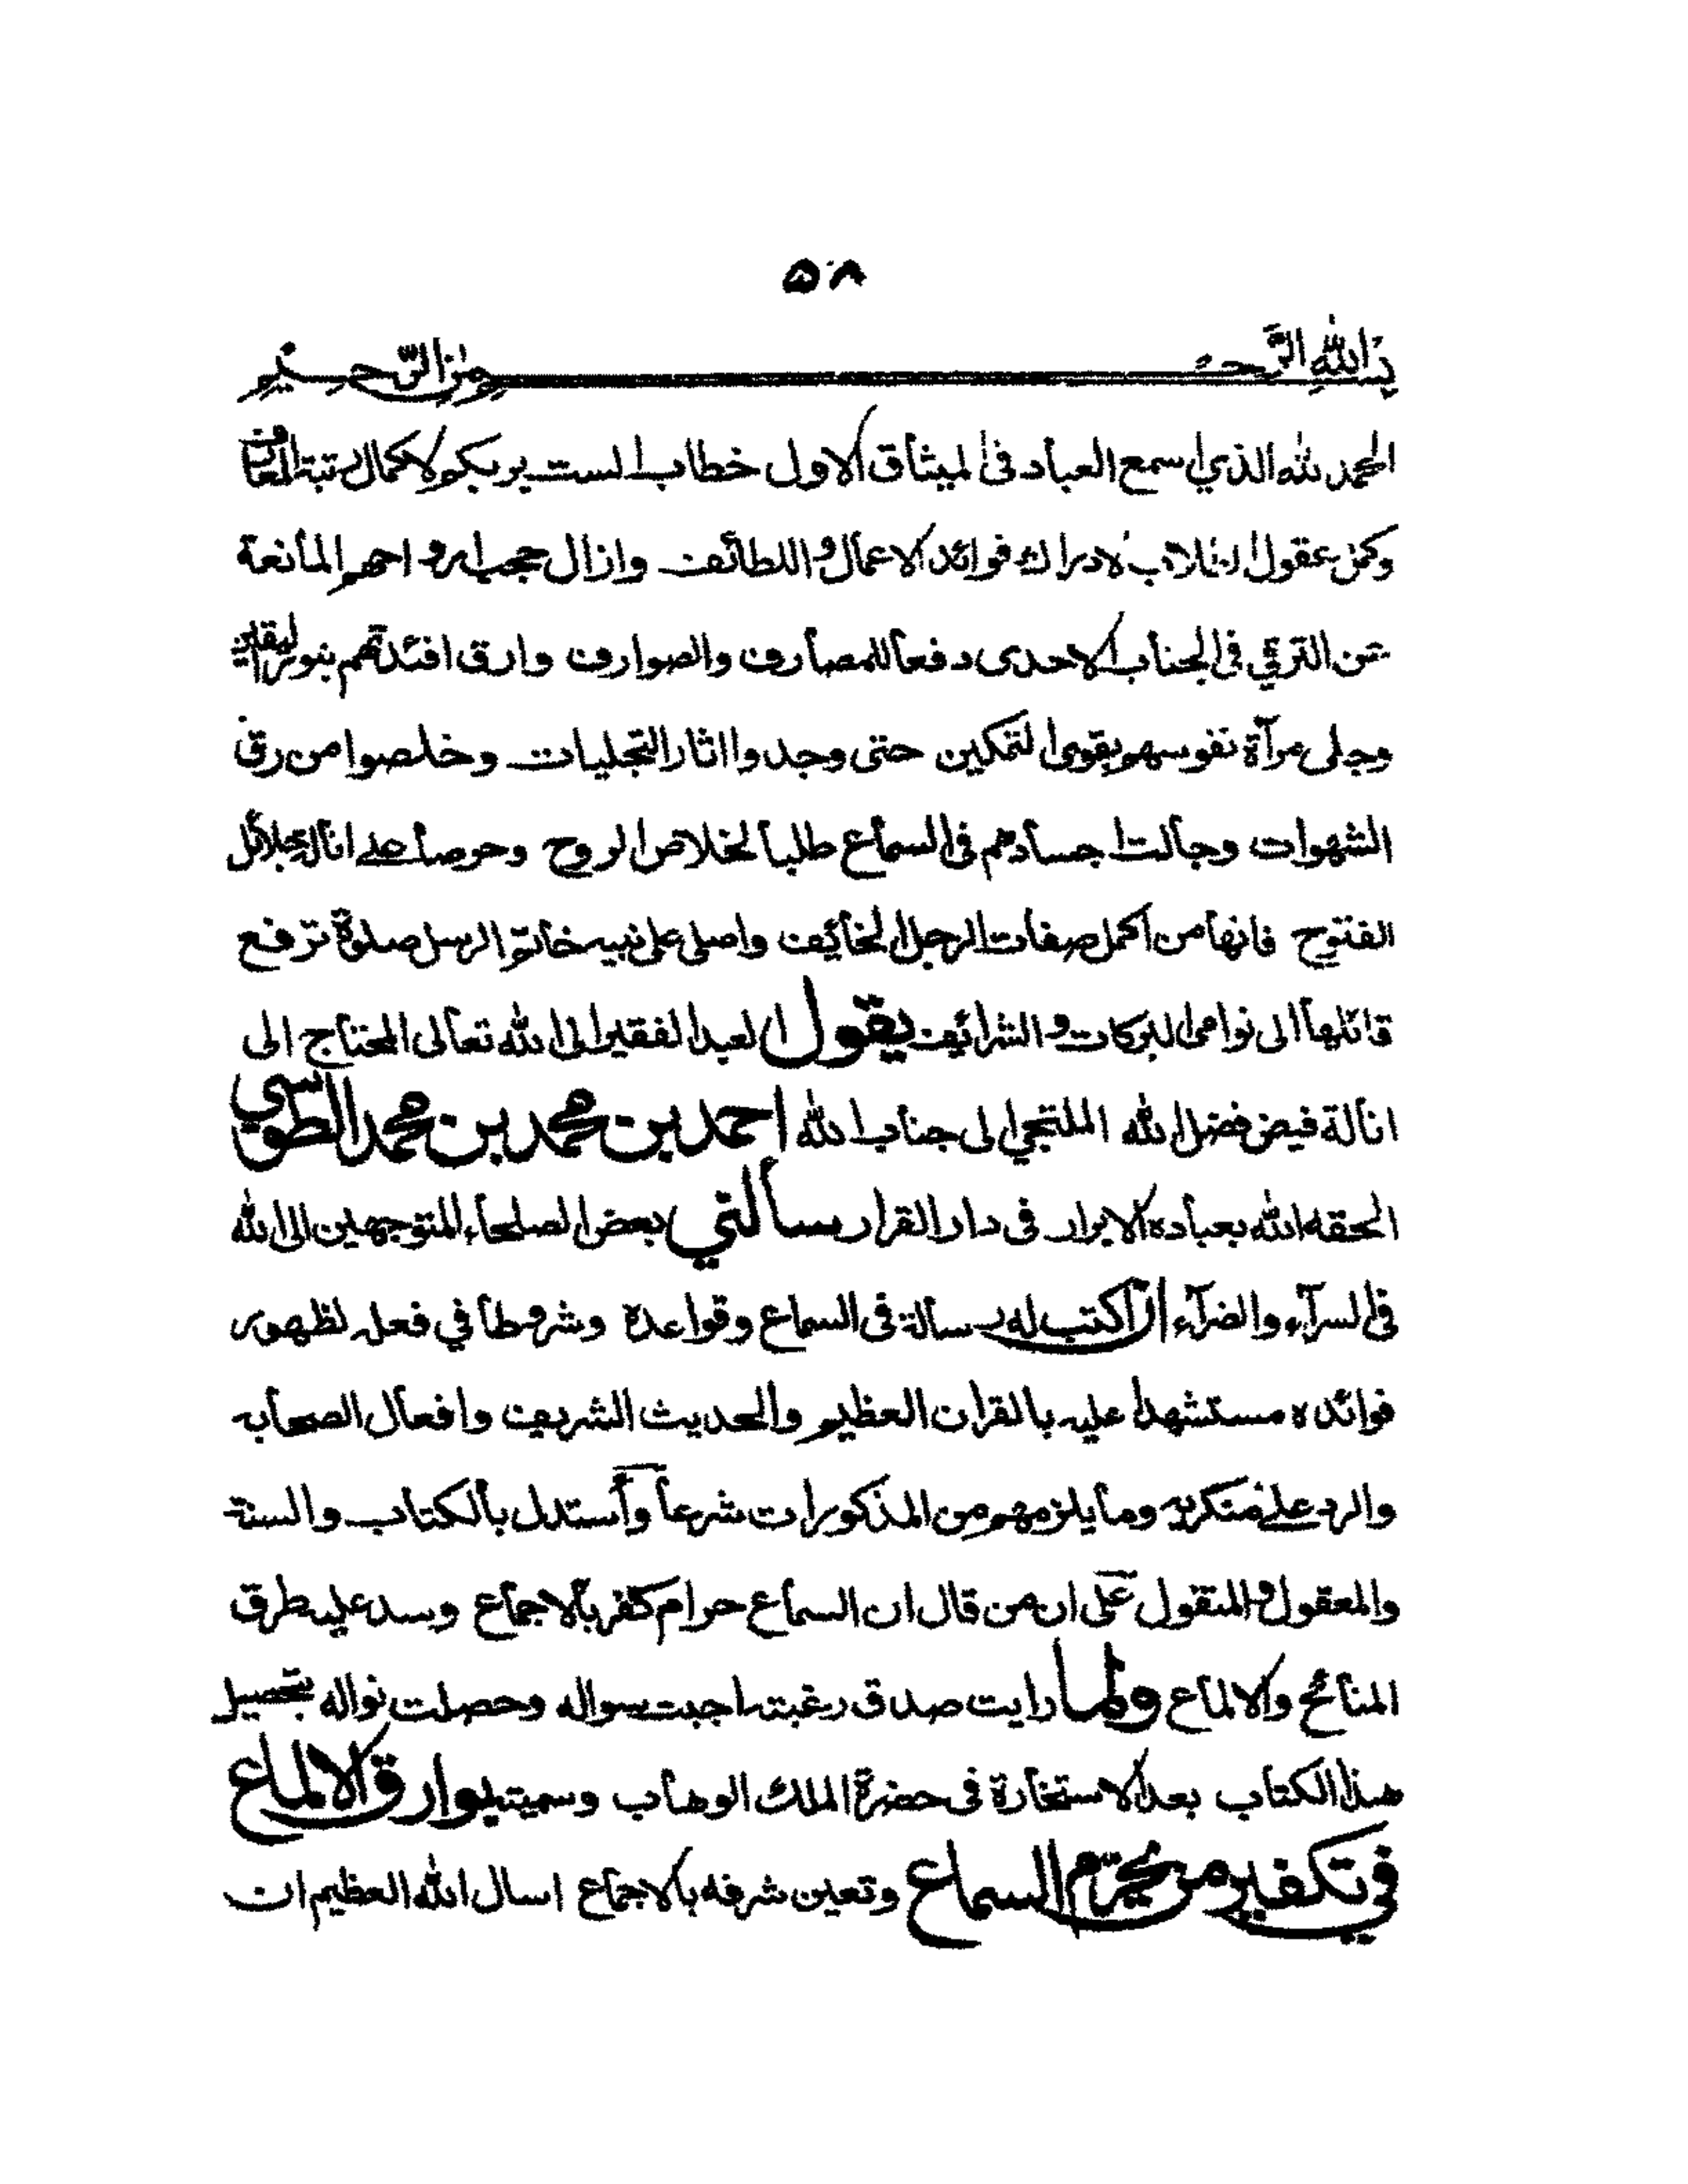 ٥٨
بسم الله الرحمن الرحيم
الحمد لله الذي اسمع العباد فى الميثاق الاول خطاب الست بربكم لاكمال رتبة المعارف
وكمن عقول الالباب لادراك فوائد الاعمال واللطائف وازال حجب ارواحهم المانعة
عن الترقي فى الجناب الاحدى دفعا للمصارف والصوارف وارق افئدتهم بنور اليقين
وجلى مرآة نفوسهم بقوى التمكين حتى وجدوا اثار التجليات وخلصوا من رق
الشهوات وجالت اجسادهم فى السماع طلبا لخلاص الروح وحرصا على انالة جلائل
الفتوح فانها من اكمل صفات الرجل الخائف واصلى على نبيه خاتم الرسل صلوة ترفع
قائلها الى نوامى البركات والشرائف يقول العبد الفقير الى الله تعالى المحتاج الى
انالة فيض فضل الله الملتجي الى جناب الله احمد بن محمد بن محمد الطوسي
الحقه الله بعباده الابرار فى دار القرار سألني بعض الصلحاء المتوجهين الى الله
فى السرآء والضرآء ان اكتب له رسالة فى السماع وقواعده وشروطا في فعله لظهور
فوائده مستشهدا عليه بالقران العظيم والحديث الشريف وافعال الصحابه
والرد على منكريه وما يلزمهم من المذكورات شرعا وأستدل بالكتاب والسنة
والمعقول والمنقول على ان من قال ان السماع حرام كفر بالاجماع وسد عليه طرق
المنائح والالماع ولما رايت صدق رغبته اجبت سواله وحصلت نواله بتحصيل
هذا الكتاب بعد الاستخارة فى حضرة الملك الوهاب وسميته بوارق الالماع
في تكفير من يحرم السماع وتعين شرفه بالاجماع اسال الله العظيم ان